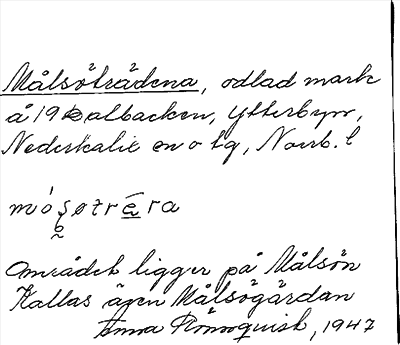 Målsöträdena, odlad mark
å 19 albacken, Ytterbyn,
Nederkalix sn o tg, Norrb. l
Området ligger på Målsön
Kallas även Målsögärdan
Anna Rönnquist, 1947